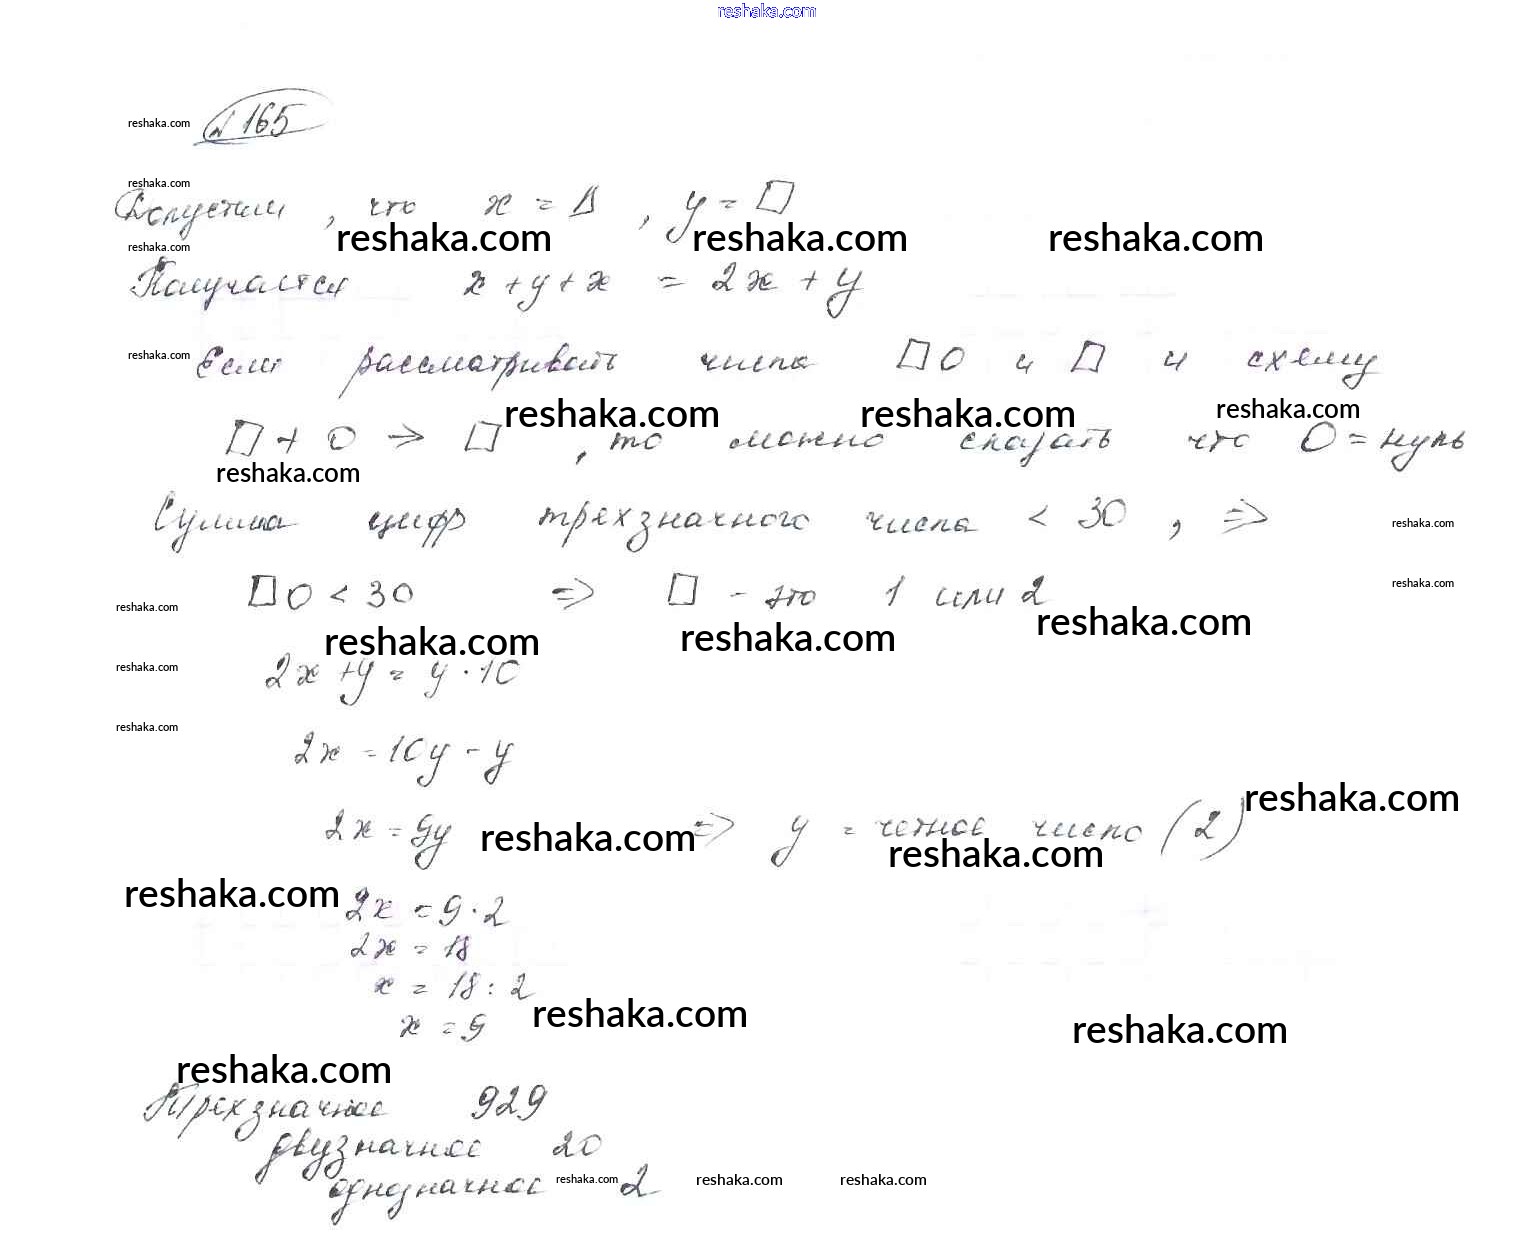 reshaka.com
reshaka.com
№ 165
reshaka.com
Допустим, что x = Δ, y = □
reshaka.com reshaka.com reshaka.com
reshaka.com
Получается x + y + x = 2x + y
reshaka.com
Если рассматривать числа □0 и □ и схему
reshaka.com reshaka.com reshaka.com
□ + 0 → □, то можно сказать что 0 = нуль
reshaka.com
Сумма цифр трехзначного числа < 30, ⇒
reshaka.com
□0 < 30 ⇒ □ - это 1 или 2
reshaka.com
reshaka.com
reshaka.com reshaka.com reshaka.com
2x + y = y · 10
reshaka.com
reshaka.com
2x = 10y - y
reshaka.com
2x = 9y ⇒ y = четное число (2)
reshaka.com reshaka.com
reshaka.com
2x = 9 · 2
2x = 18
x = 18 : 2
x = 9
reshaka.com reshaka.com
reshaka.com
Трехзначное 929
двузначное 20
однозначное 2
reshaka.com reshaka.com reshaka.com